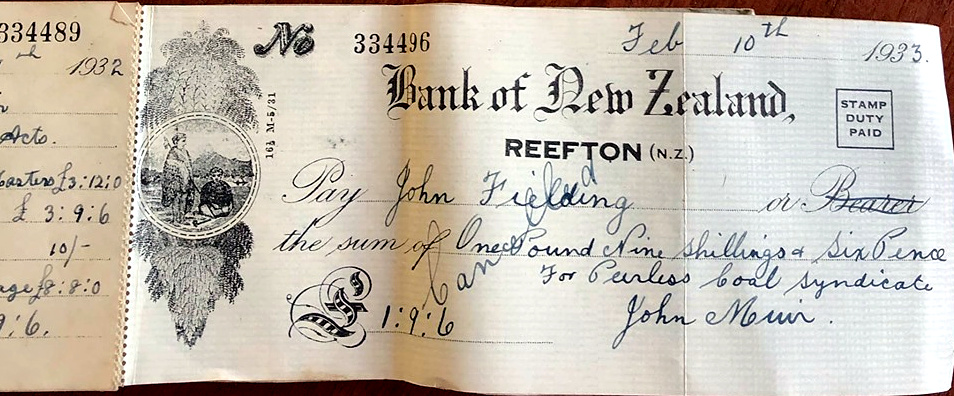 334489
1932
Acts.
£3:12:0
£ 3:9:6
10/-
£8:8:0
9:6.
No 334496
Feb 10th 1933.
Bank of New Zealand,
STAMP
DUTY
PAID
REEFTON (N.Z.)
16½ M-5/31
Pay John Fielding or Bearer
the sum of One Pound Nine shillings & Six Pence
Cancelled
For Peerless Coal Syndicate
£ 1:9:6
John Muir.